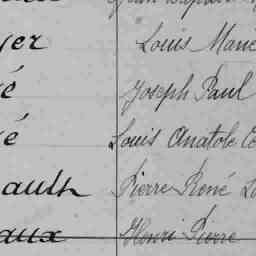 yer Louis Marie
é Joseph Paul
é Louis Anatole
ault Pierre René
aux Henri Pierre